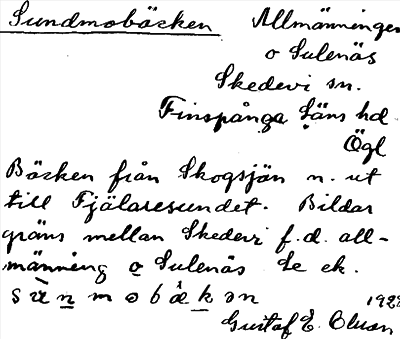 Sundmobäcken Allmänningen
o Sulenäs
Skedevi sn.
Finspånga Läns hd
Ögl
Bäcken från Skogsjön n. ut
till Fjälaresundet. Bildar
gräns mellan Skedevi f.d. all-
männing o Sulenäs Se ek.
Gustaf E.